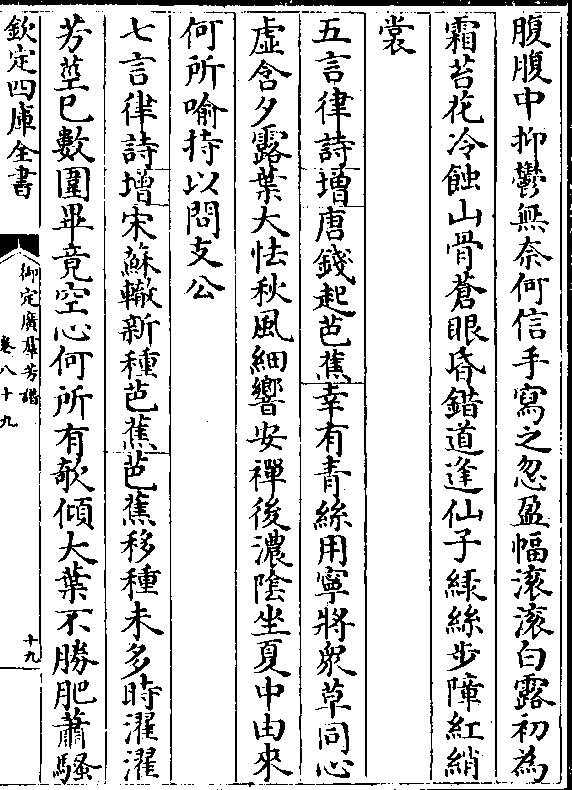 腹腹中抑鬱無奈何信手寫之忽盈幅滚滚白露初為
霜苔花冷蝕山骨蒼眼昏錯道逢仙子緑絲步障紅綃
裳
五言律詩增唐錢起芭蕉幸有青絲用寧將衆草同心
虛含夕露葉大怯秋風細響安禪後濃陰坐夏中由來
何所喻持以問支公
七言律詩增宋蘇轍新種芭蕉芭蕉移種未多時濯濯
芳莖已數圍畢竟空心何所有欹傾大葉不勝肥蕭騷
欽定四庫全書
御定廣羣芳譜
卷八十九
十九